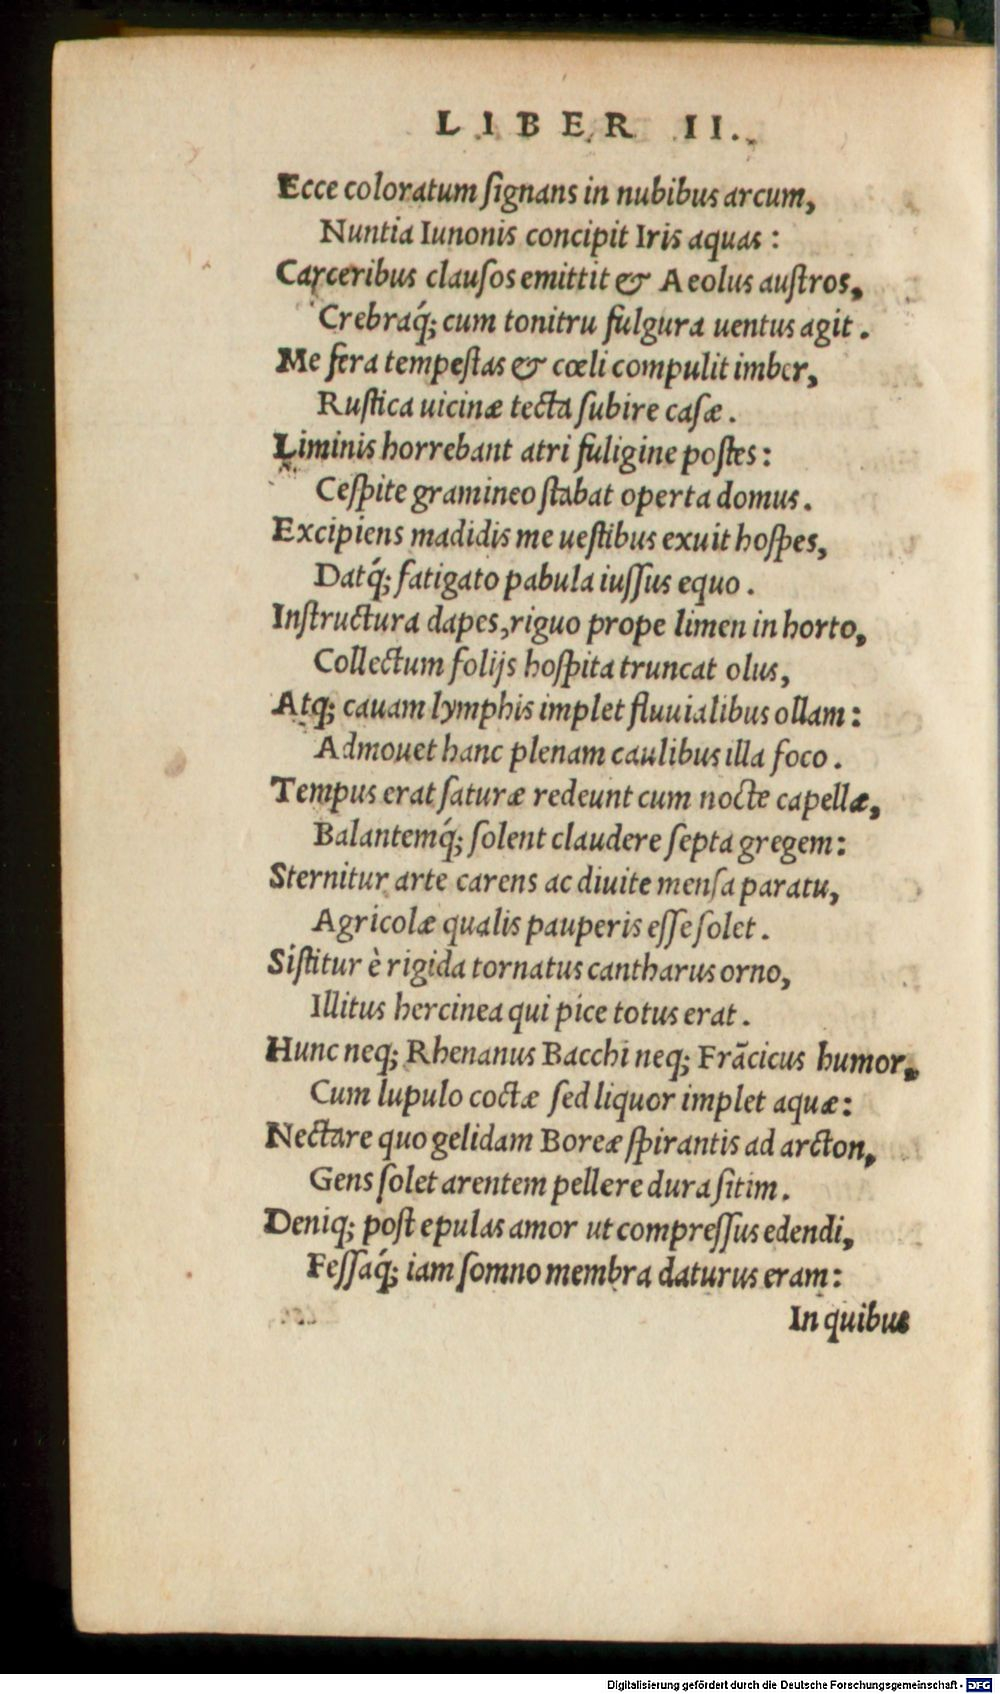 LIBER II.
Ecce coloratum ſignans in nubibus arcum,
Nuntia Iunonis concipit Iris aquas :
Carceribus clauſos emittit & Aeolus auſtros,
Crebraq́; cum tonitru fulgura uentus agit.
Me fera tempeſtas & cœli compulit imber,
Ruſtica uicinæ tecta ſubire caſæ.
Liminis horrebant atri fuligine poſtes:
Ceſpite gramineo ſtabat operta domus.
Excipiens madidis me ueſtibus exuit hoſpes,
Datq́; fatigato pabula iuſſus equo.
Inſtructura dapes, riguo prope limen in horto,
Collectum folijs hoſpita truncat olus,
Atq; cauam lymphis implet fluuialibus ollam:
Admouet hanc plenam caulibus illa foco.
Tempus erat ſaturæ redeunt cum nocte capellæ,
Balantemq́; ſolent claudere ſepta gregem:
Sternitur arte carens ac diuite menſa paratu,
Agricolæ qualis pauperis eſſe ſolet.
Siſtitur è rigida tornatus cantharus orno,
Illitus hercinea qui pice totus erat.
Hunc neq; Rhenanus Bacchi neq; Frãcicus humor,
Cum lupulo coctæ ſed liquor implet aquæ:
Nectare quo gelidam Boreæ ſpirantis ad arcton,
Gens ſolet arentem pellere dura ſitim.
Deniq; poſt epulas amor ut compreſſus edendi,
Feſſaq́; iam ſomno membra daturus eram:
In quibus
Digitalisierung gefördert durch die Deutsche Forschungsgemeinschaft - DFG